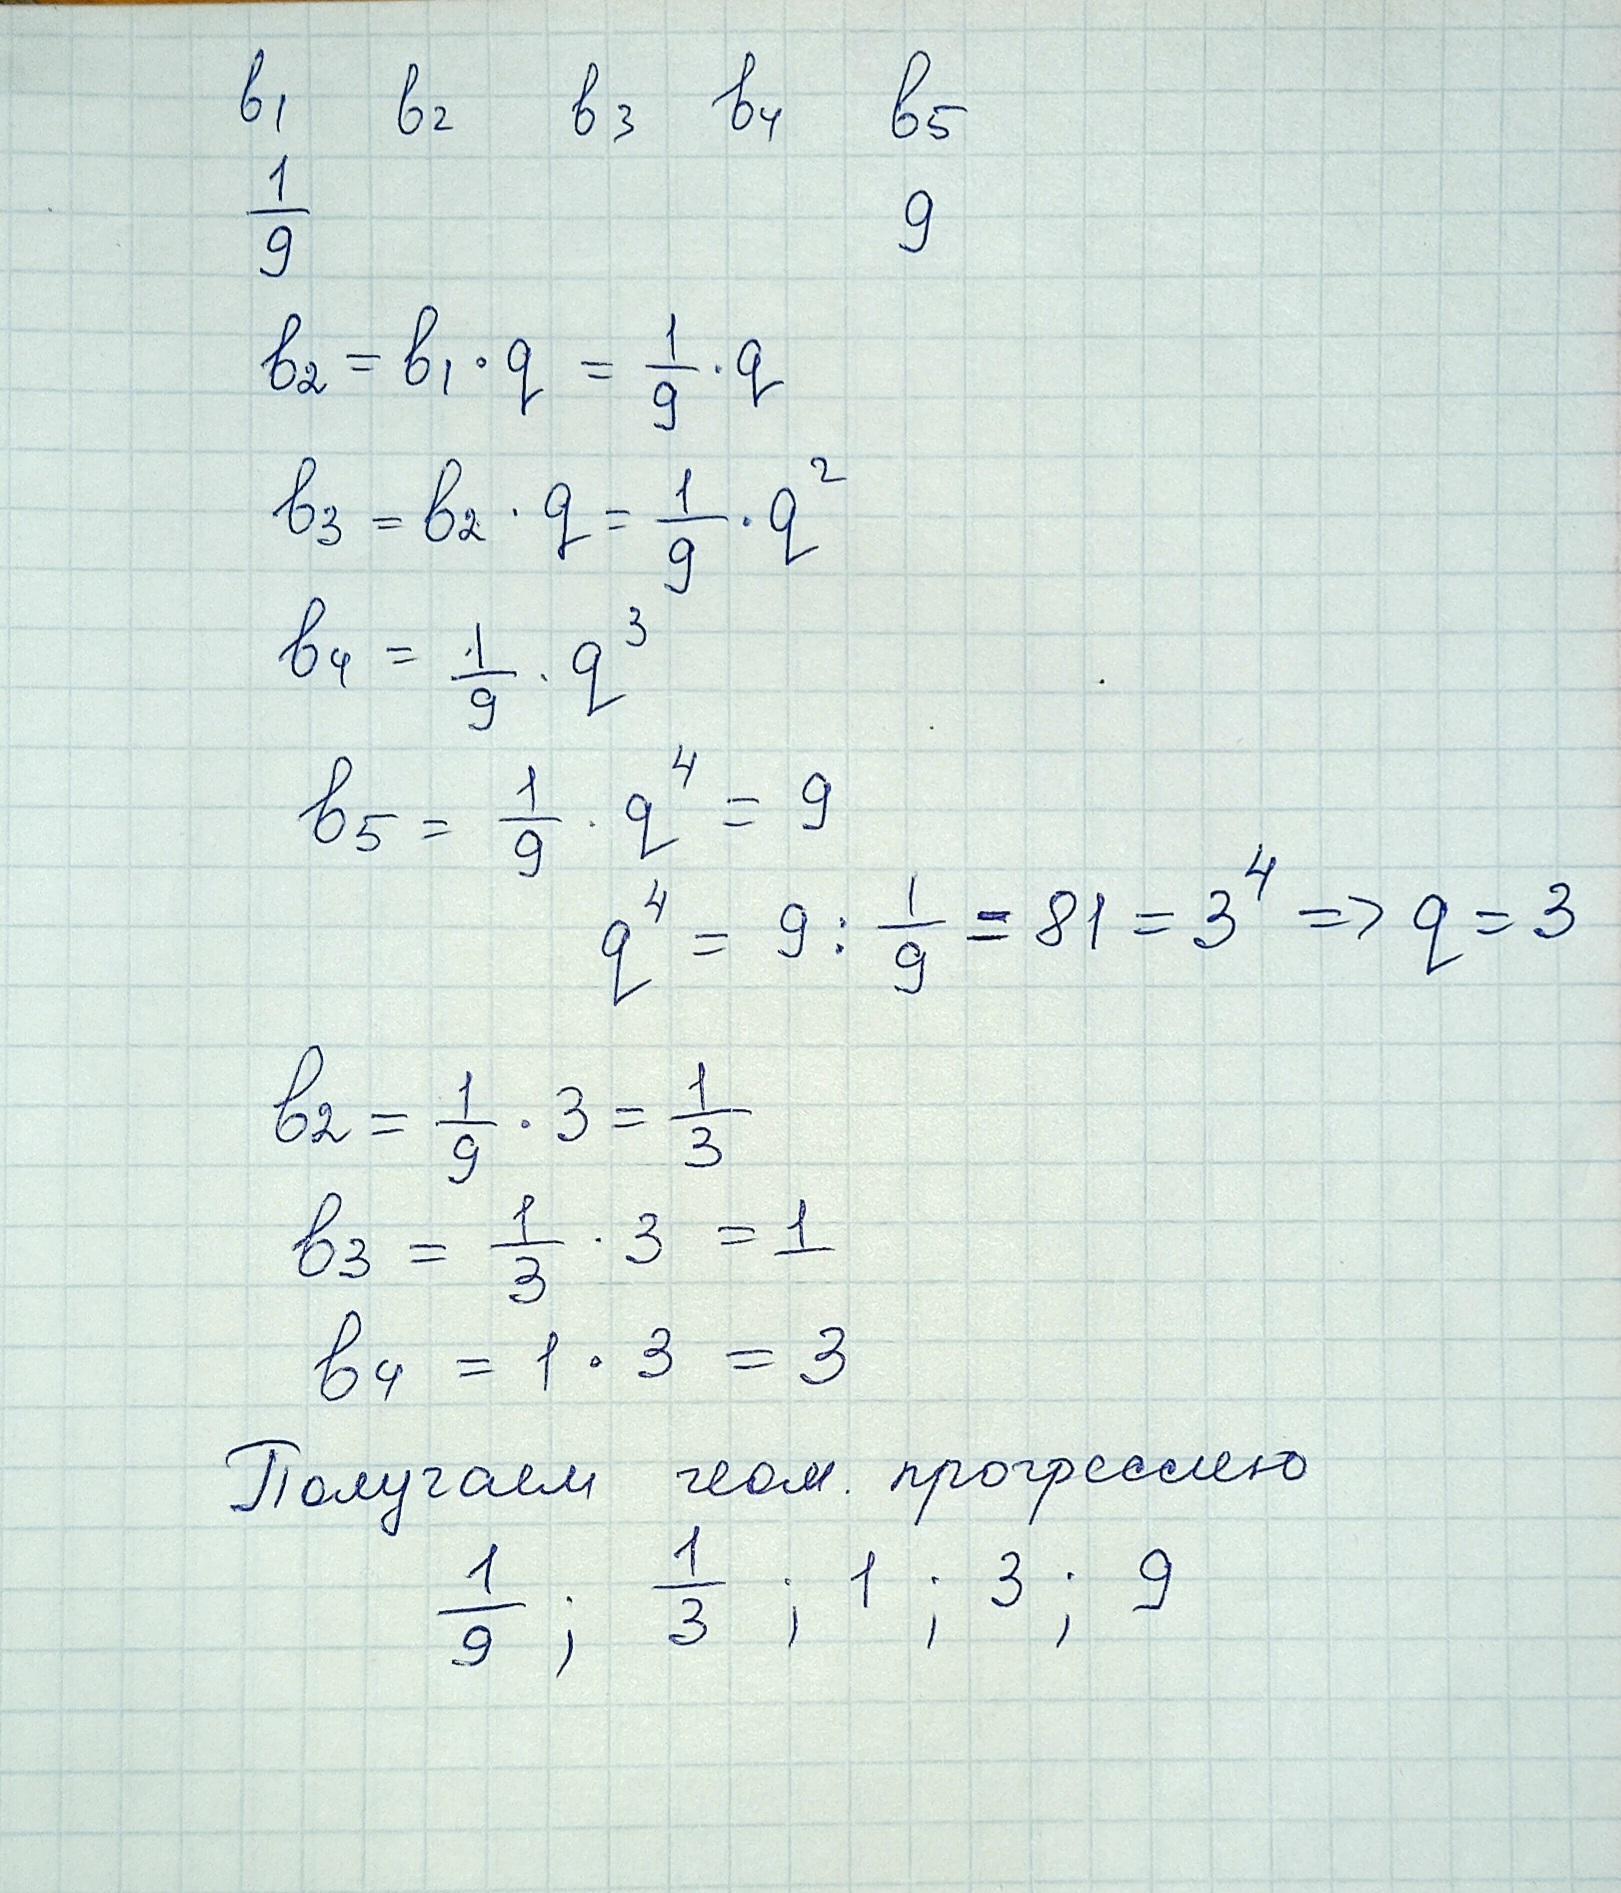 b1 b2 b3 b4 b5
1/9 9
b2 = b1 · q = 1/9 · q
b3 = b2 · q = 1/9 · q²
b4 = 1/9 · q³
b5 = 1/9 · q⁴ = 9
q⁴ = 9 : 1/9 = 81 = 3⁴ => q = 3
b2 = 1/9 · 3 = 1/3
b3 = 1/3 · 3 = 1
b4 = 1 · 3 = 3
Получаем геом. прогрессию
1/9 ; 1/3 ; 1 ; 3 ; 9